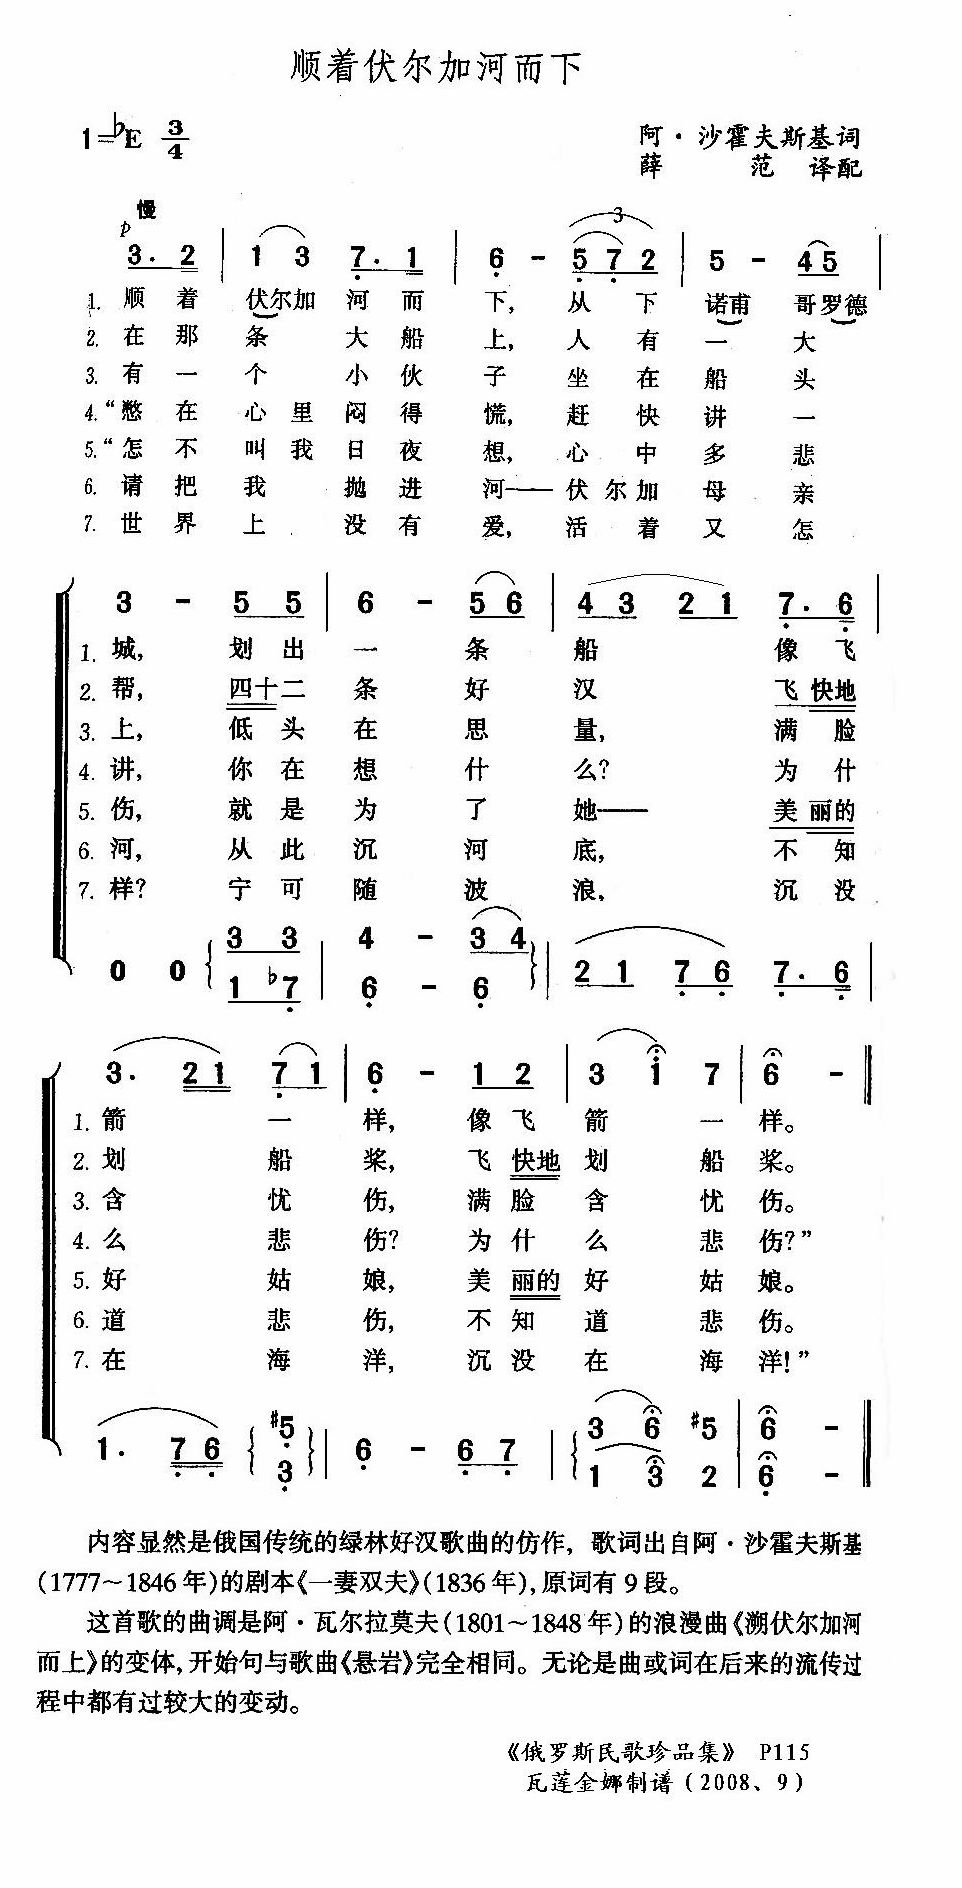 顺着伏尔加河而下
1=♭E 3/4
阿·沙霍夫斯基词
薛 范 译配
慢
p
3. 2 | 1 3 7. 1 | 6 - 5 7 2 | 5 - 4 5 |
3
1. 顺着伏尔加河而下,从下诺甫哥罗德
2. 在那条大船上,人有一大
3. 有一个小伙子坐在船头
4. “憋在心里闷得慌,赶快讲一
5. “怎不叫我日夜想,心中多悲
6. 请把我抛进河——伏尔加母亲
7. 世界上没有爱,活着又怎
3 - 5 5 | 6 - 5 6 | 4 3 2 1 7. 6 |
1. 城,划出一条船像飞
2. 帮,四十二条好汉飞快地
3. 上,低头在思量,满脸
4. 讲,你在想什么?为什
5. 伤,就是为了她——美丽的
6. 河,从此沉河底,不知
7. 样?宁可随波浪,沉没
0 0 { 3 3 | 4 - 3 4 } | 2 1 7 6 7. 6 |
1 ♭7 | 6 - 6
3. 2 1 7 1 | 6 - 1 2 | 3 i 7 | 6 - ‖
1. 箭一样,像飞箭一样。
2. 划船桨,飞快地划船桨。
3. 含忧伤,满脸含忧伤。
4. 么悲伤?为什么悲伤?”
5. 好姑娘,美丽的好姑娘。
6. 道悲伤,不知道悲伤。
7. 在海洋,沉没在海洋!”
1. 7 6 { #5 } | 6 - 6 7 | { 3 6 #5 | 6 - ‖
3 1 3 2 | 6 -
内容显然是俄国传统的绿林好汉歌曲的仿作,歌词出自阿·沙霍夫斯基
(1777～1846年)的剧本《一妻双夫》(1836年),原词有9段。
这首歌的曲调是阿·瓦尔拉莫夫(1801～1848年)的浪漫曲《溯伏尔加河
而上》的变体,开始句与歌曲《悬岩》完全相同。无论是曲或词在后来的流传过
程中都有过较大的变动。
《俄罗斯民歌珍品集》 P115
瓦莲金娜制谱(2008、9)